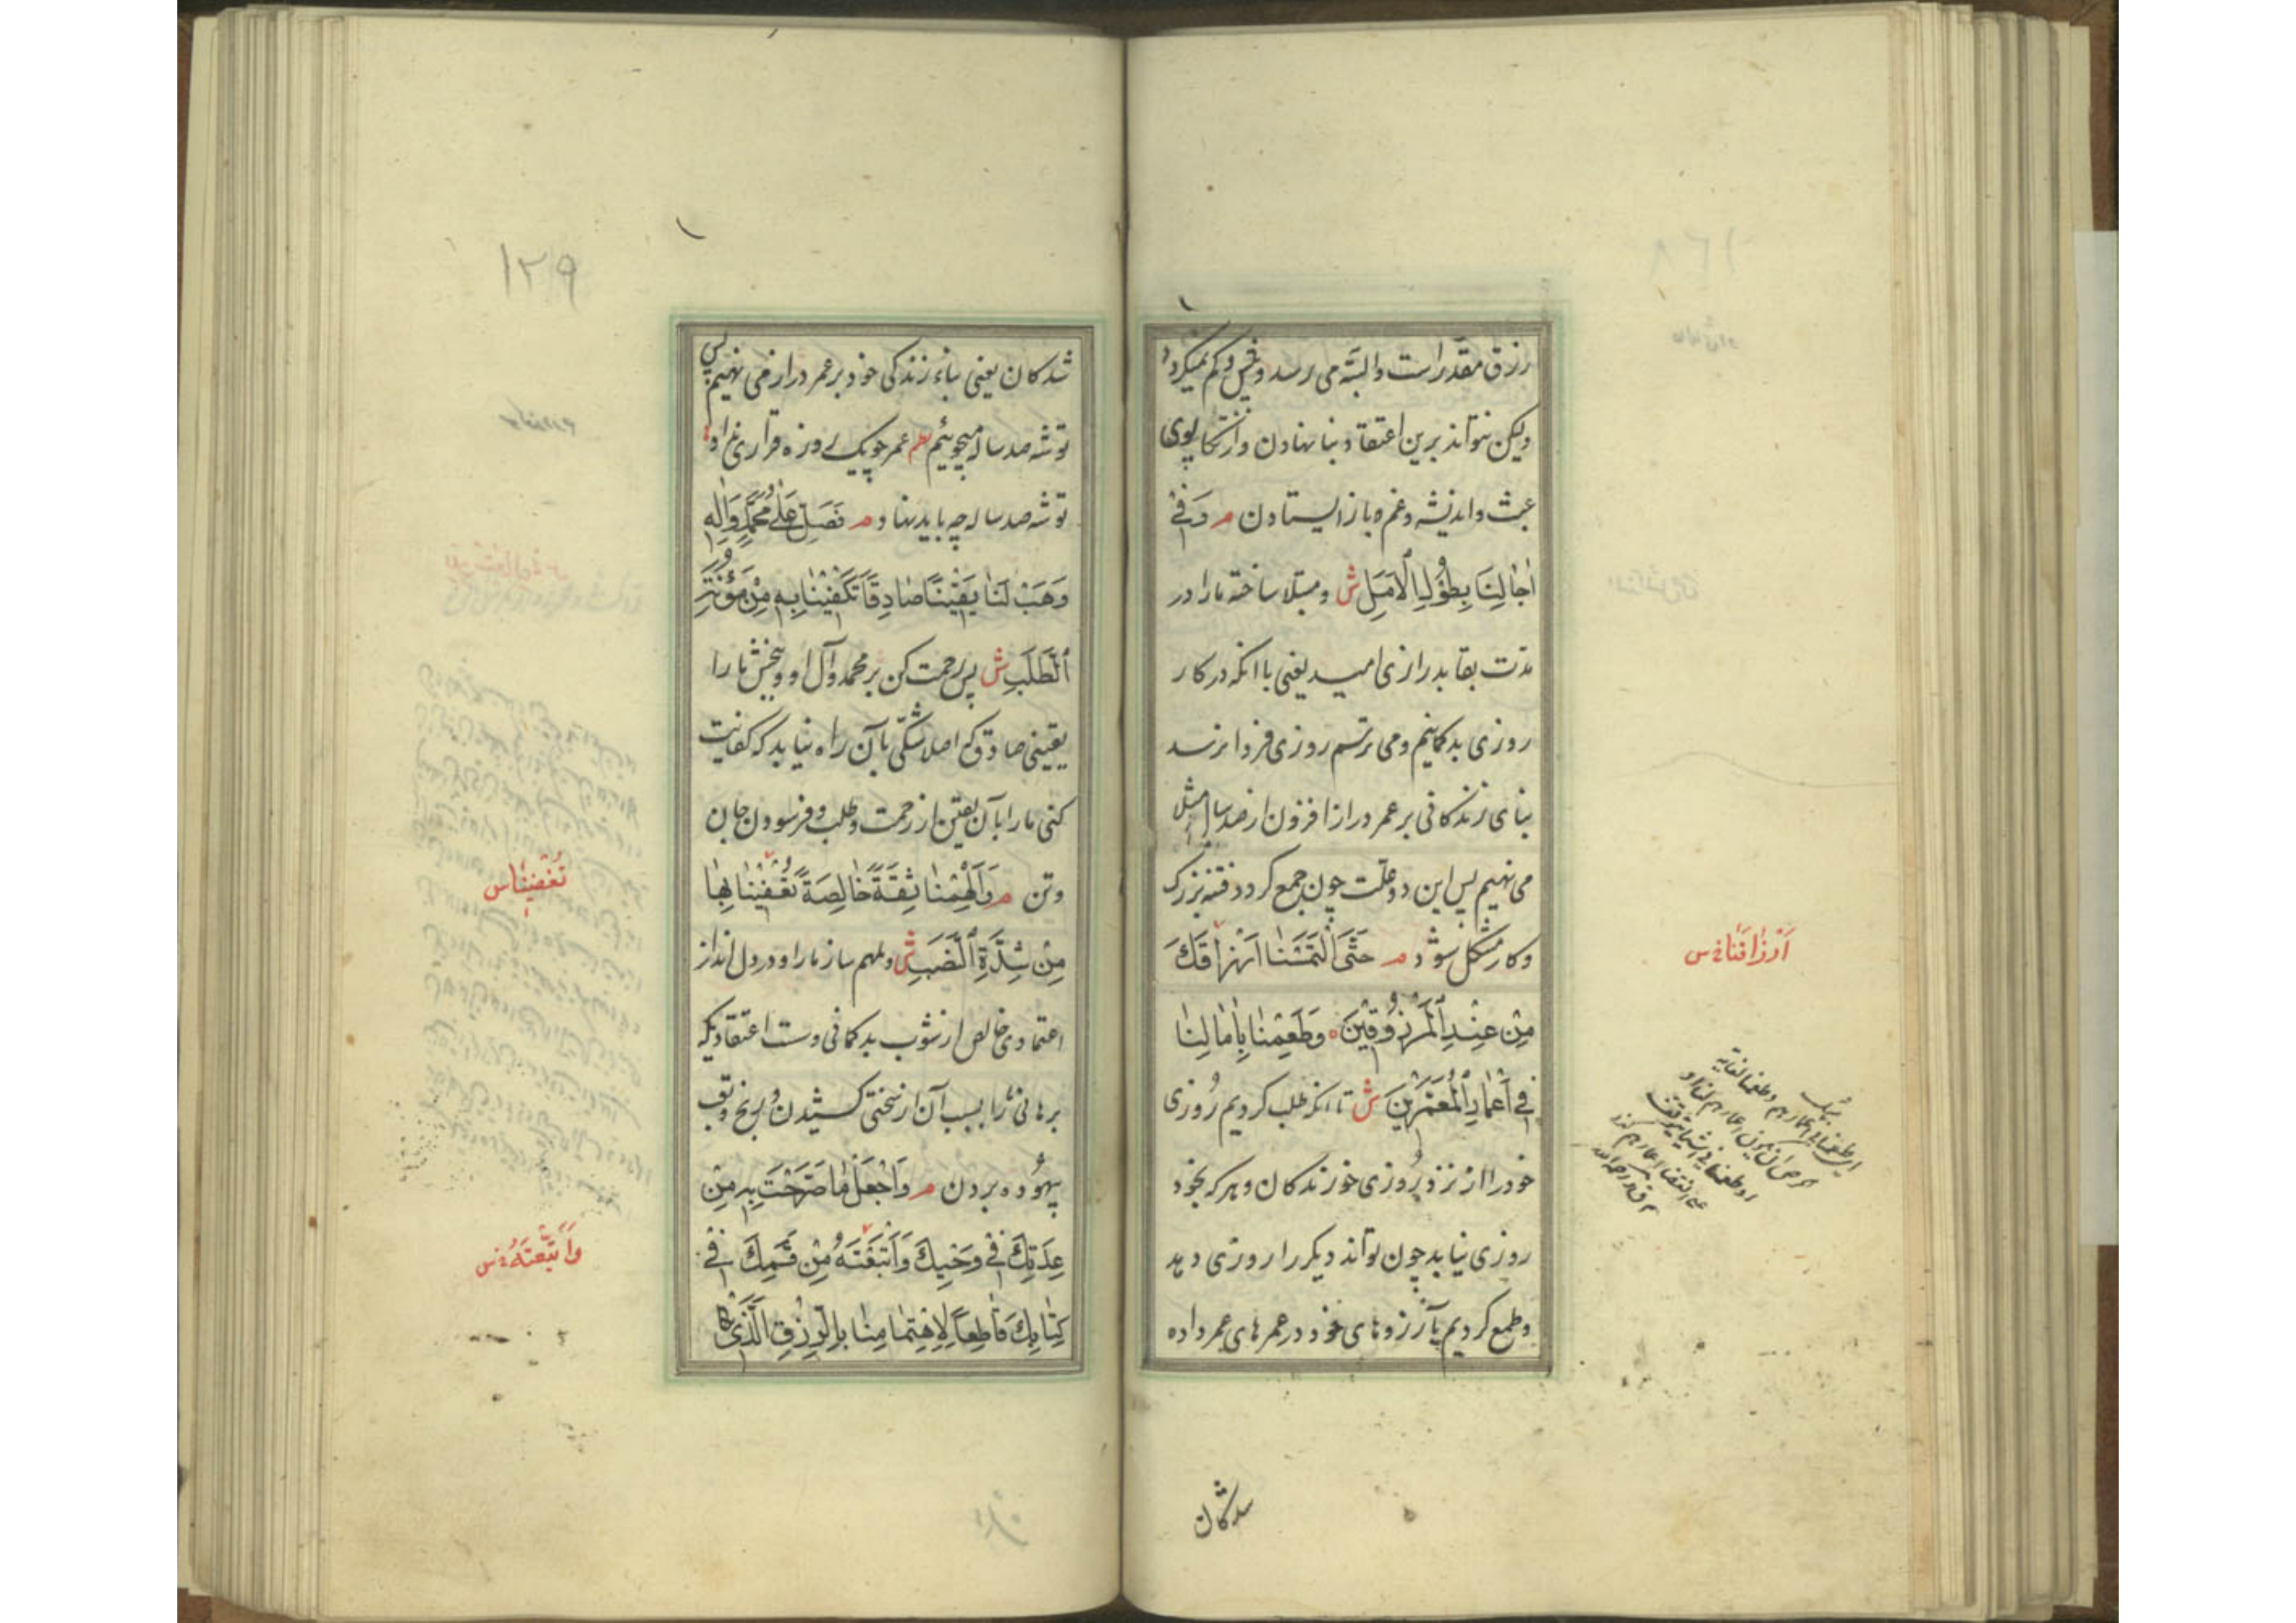 رزق مقدّر است و البتّه می رسد و بیش و کم نمیگردد
ولیکن نتواند برین اعتقاد بنا نهادن و از تکاپوی
عبث و اندیشه و غم ه باز ایستادن م وَ فی
اٰجٰالِنَا بِطُولِ الْاَمَلِ ش و مبتلا ساخته ما را در
مدّت بقا بدرازی امید یعنی با انکه در کار
روزی بدگمانیم و می ترسم روزی فردا نرسد
بنای زندگانی بر عمر دراز افزون از صد سال مثلا
می نهیم پس این دو علّت چون جمع گردد فتنه بزرگ
و کار مشکل شود م حَتَّی الْتَمَسْنٰا اَرْزٰاقَكَ
مِنْ عِنْدِ الْمَرْزُوقینَ ه وَ طَمِعْنٰا بِاٰمٰالِنٰا
فی اَعْمٰارِ الْمُعَمَّرینَ ش تا انکه طلب کردیم رُوزی
خود را از نزد رُوزی خورندکان و هر که بخود
روزی نیابد چون تواند دیگر را روزی دهد
و طمع کردیم بآرزوهای خود در عمرهای عمر داده
شدکان
اَرْزٰاقَنٰا س
۱۲۹
شدکان یعنی بناء زندکی خود بر عمر دراز می نهیم پس
توشه صد ساله میجوئیم نظم عمر چو یک روزه قراری نداد
توشه صد ساله چه باید نهاد م فَصَلِّ عَلٰی مُحَمَّدٍ وَ اٰلِهِ
وَ هَبْ لَنٰا یَقینًا صٰادِقًا تَکْفینٰا بِهِ مِنْ مَؤُنَةِ
الطَّلَبِ ش پس رحمت کن بر محمد و آل او و ببخش ما را
یقینی صادق که اصلا شکّی بآن راه نیابد که کفایت
کنی ما را بآن یقین از زحمت و طلب و فرسودن جان
و تن م وَ اَلْهِمْنٰا ثِقَةً خٰالِصَةً تُعْفینٰا بِهٰا
مِنْ شِدَّةِ النَّصَبِ ش و ملهم ساز ما را و در دل انداز
اعتمادی خالص از شوب بدگمانی و سست اعتقادی که
برهانی ما را بسبب آن از سختی کشیدن و رنج و تعب
بیهُوده بردن م وَ اجْعَلْ مٰا صَرَّحْتَ بِهِ مِنْ
عِدَتِكَ فی وَحْیِكَ وَ اَتْبَعْتَهُ مِنْ قَسَمِكَ فی
کِتٰابِكَ قٰاطِعًا لِاِهْتِمٰامِنٰا بِالرِّزْقِ الَّذی
وَ اَتْبَعْتَهُ س